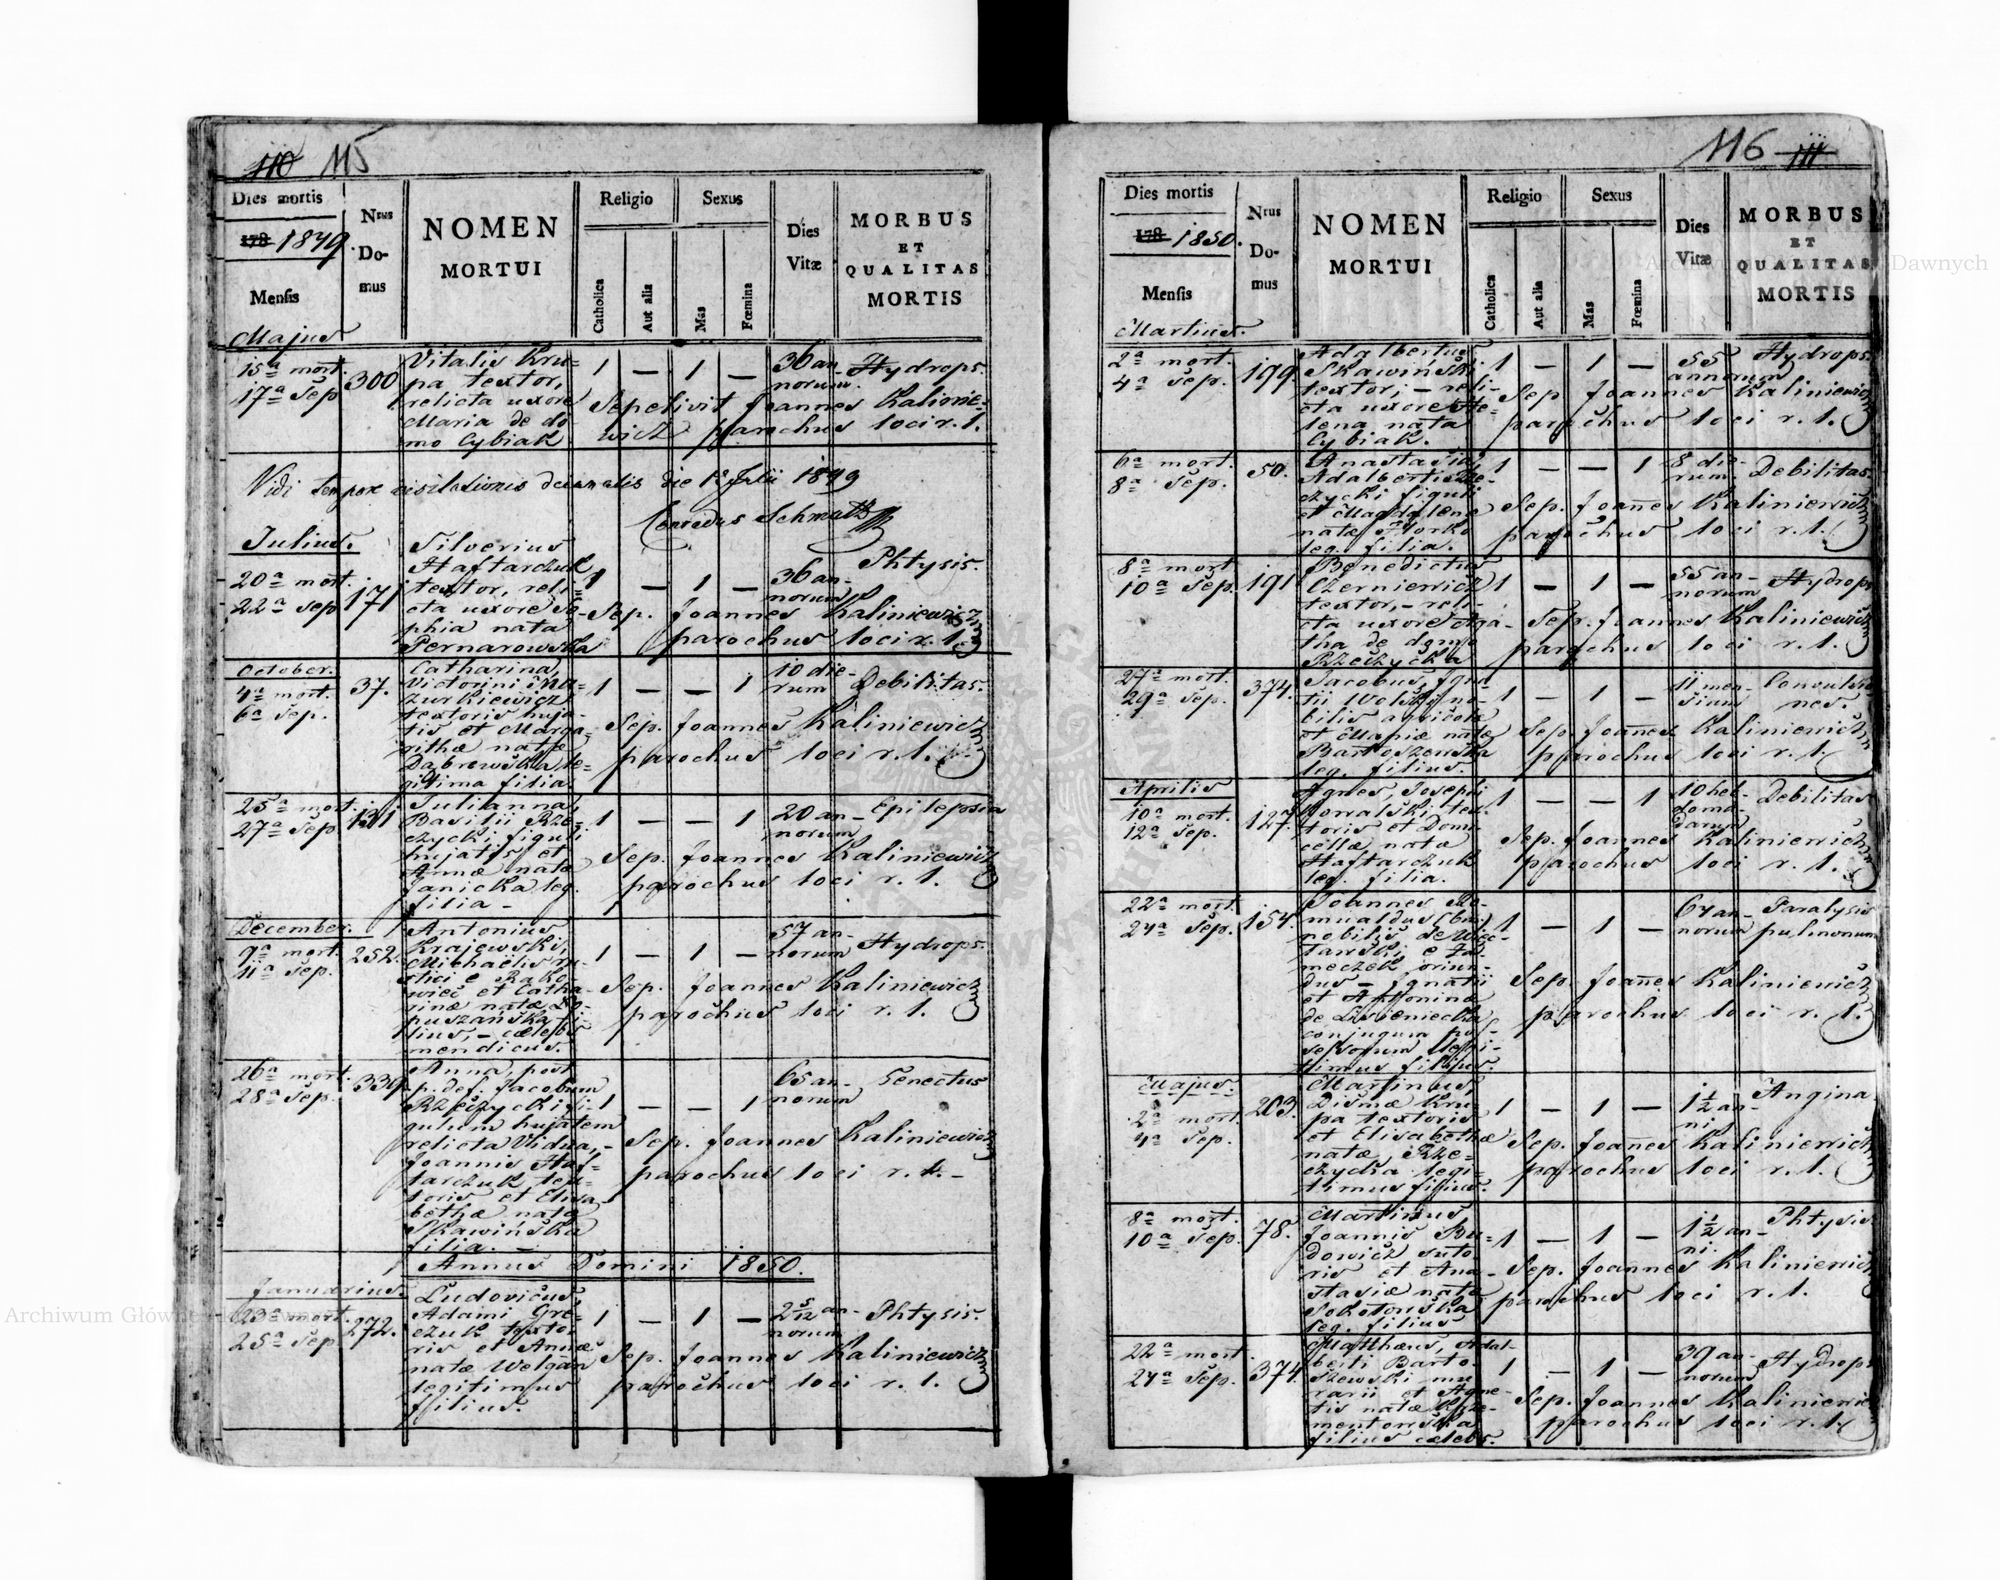 110 115
Dies mortis
178 1849.
Mensis
Majus
Nrus Do- mus
NOMEN
MORTUI
Religio
Catholica
Aut alia
Sexus
Mas
Fœmina
Dies Vitæ
MORBUS
ET
QUALITAS
MORTIS
15a mort.
17a Sep
300
Vitalis Kru-
pa textor,
relicta uxore
Maria de do-
mo Cybiak
1 — 1 —
36 an-
norum.
Hydrops.
Sepelivit Joannes Kalinie-
wicz parochus loci r. l.
Vidi tempore visitationis decanalis die 12 Julii 1849
Conradus Schmutz
Julius.
20a mort.
22a Sep
171
Silverius
Haftarczuk
textor, reli-
cta uxore So-
phia nata
Pernarowska
1 — 1 —
36 an-
norum
Phtysis.
Sep. Joannes Kaliniewicz
parochus loci r. l.
October.
4a mort.
6a Sep.
37.
Catharina,
Victorini
Zurkiewicz
textoris huja-
tis et Marga-
rithæ natæ
Dąbrowska le-
gitima filia.
1 — — 1
10 die-
rum
Debilitas.
Sep. Joannes Kaliniewicz
parochus loci r. l.
25a mort.
27a Sep
131
Julianna,
Basilii Rze-
czycki figuli
hujatis et
Annæ nata
Janicka leg.
filia —
1 — — 1
20 an-
norum
Epilepsia
Sep. Joannes Kaliniewicz
parochus loci r. l.
December.
9a mort.
11a Sep.
252.
Antonius
Krajewski,
Michaëlis ru-
stici e Rako-
wiec et Catha-
rinæ natæ Ło-
puszańska fi-
lius, — cælebs
mendicus.
1 — 1 —
57 an-
norum
Hydrops.
Sep. Joannes Kaliniewicz
parochus loci r. l.
26a mort.
28a Sep.
339
Anna, post
p. def. Jacobum
Rzeczycki fi-
gulum hujatem
relicta Vidua, —
Joannis Haf-
tarczuk tex-
toris et Elisa-
bethæ nata
Skawińska
filia. —
1 — — 1
65 an-
norum
Senectus
Sep. Joannes Kaliniewicz
parochus loci r. l. —
Annus Domini 1850.
Januarius.
23a mort.
25a Sep
272.
Ludovicus,
Adami Gre-
czuk texto-
ris et Annæ
natæ Welgan
legitimus
filius.
1 — 1 —
2 5/12 an-
norum
Phtysis.
Sep. Joannes Kaliniewicz
parochus loci r. l.
116 111
Dies mortis
178 1850.
Mensis
Martius.
Nrus Do- mus
NOMEN
MORTUI
Religio
Catholica
Aut alia
Sexus
Mas
Fœmina
Dies Vitæ
MORBUS
ET
QUALITAS
MORTIS
2a mort.
4a Sep.
199.
Adalbertus
Skawiński
textor, — reli-
cta uxore He-
lena nata
Cybiak.
1 — 1 —
55
annorum
Hydrops.
Sep. Joannes Kaliniewicz
parochus loci r. l.
6a mort.
8a Sep.
50.
Anastasia,
Adalberti Rze-
czycki figuli
et Magdalenæ
natæ
leg. filia.
1 — — 1
8 die-
rum.
Debilitas.
Sep. Joanes Kaliniewicz
parochus loci r. l.
8a mort
10a Sep.
191
Benedictus
Czerniewicz
textor, — reli-
cta uxore Aga-
tha de domo
Rzeczycka
1 — 1 —
55 an-
norum
Hydrops
Sep. Joannes Kaliniewicz
parochus loci r. l.
27a mort.
29a Sep.
374.
Jacobus, Igna-
tii Wolski no-
bilis agricolæ
et Mariæ natæ
Bartoszewska
leg. filius.
1 — 1 —
11 men-
sium
Convulsio-
nes.
Sep. Joanes Kaliniewicz
parochus loci r. l.
Aprilis
10a mort.
12a Sep.
127.
Agnes, Josephi
Kowalski tex-
toris et Domi-
cellæ nata
Haftarczuk
leg. filia.
1 — — 1
10 heb-
doma-
darum
Debilitas
Sep. Joannes Kaliniewicz
parochus loci r. l.
22a mort.
24a Sep.
154.
Joannes Ro-
mualdus (bin.)
nobilis de
e Za-
meczek oriun-
dus — Ignatii
et Antoninæ
de
conjugum pos-
sessorum legi-
timus filius.
1 — 1 —
64 an-
norum
Paralysis
pulmonum
Sep. Joanes Kaliniewicz
parochus loci r. l.
Majus.
2a mort.
4a Sep.
203.
Martinus,
Dismæ Kru-
pa textoris
et Elisabethæ
natæ Rze-
czycka legi-
timus filius.
1 — 1 —
1 1/2 an-
ni
Angina
Sep. Joanes Kaliniewicz
parochus loci r. l.
8a mort.
10a Sep.
78.
Martinus
Joannis Bu-
dowicz suto-
ris et Ana-
stasiæ nata
Sokołowska
leg. filius
1 — 1 —
1 1/2 an-
ni.
Phtysis
Sep. Joannes Kaliniewicz
parochus loci r. l.
22a mort.
24a Sep.
374.
Matthæus, Adal-
berti Barto-
szewski mu-
rarii et Agne-
tis natæ Krze-
mentowska
filius cælebs.
1 — 1 —
39 an-
norum
Hydrops
Sep. Joannes Kaliniewicz
parochus loci r. l.
Archiwum Główne
Dawnych